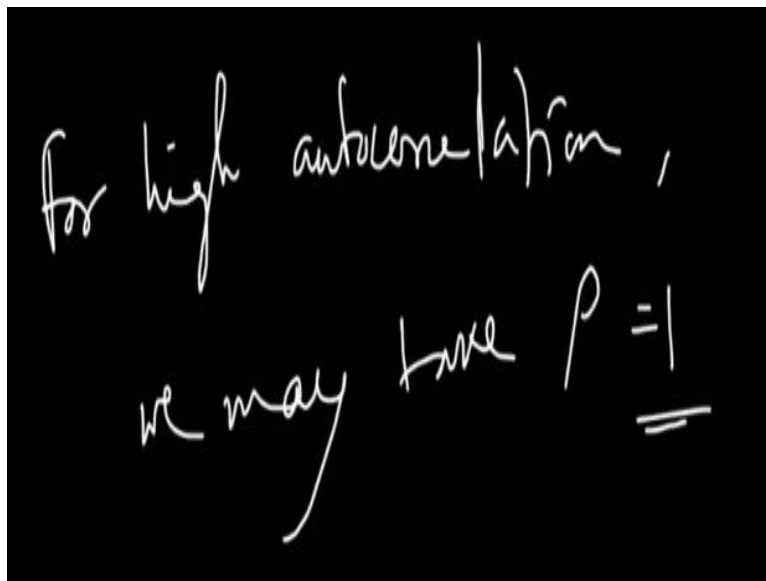 for high autocorrelation,
we may take ρ = 1